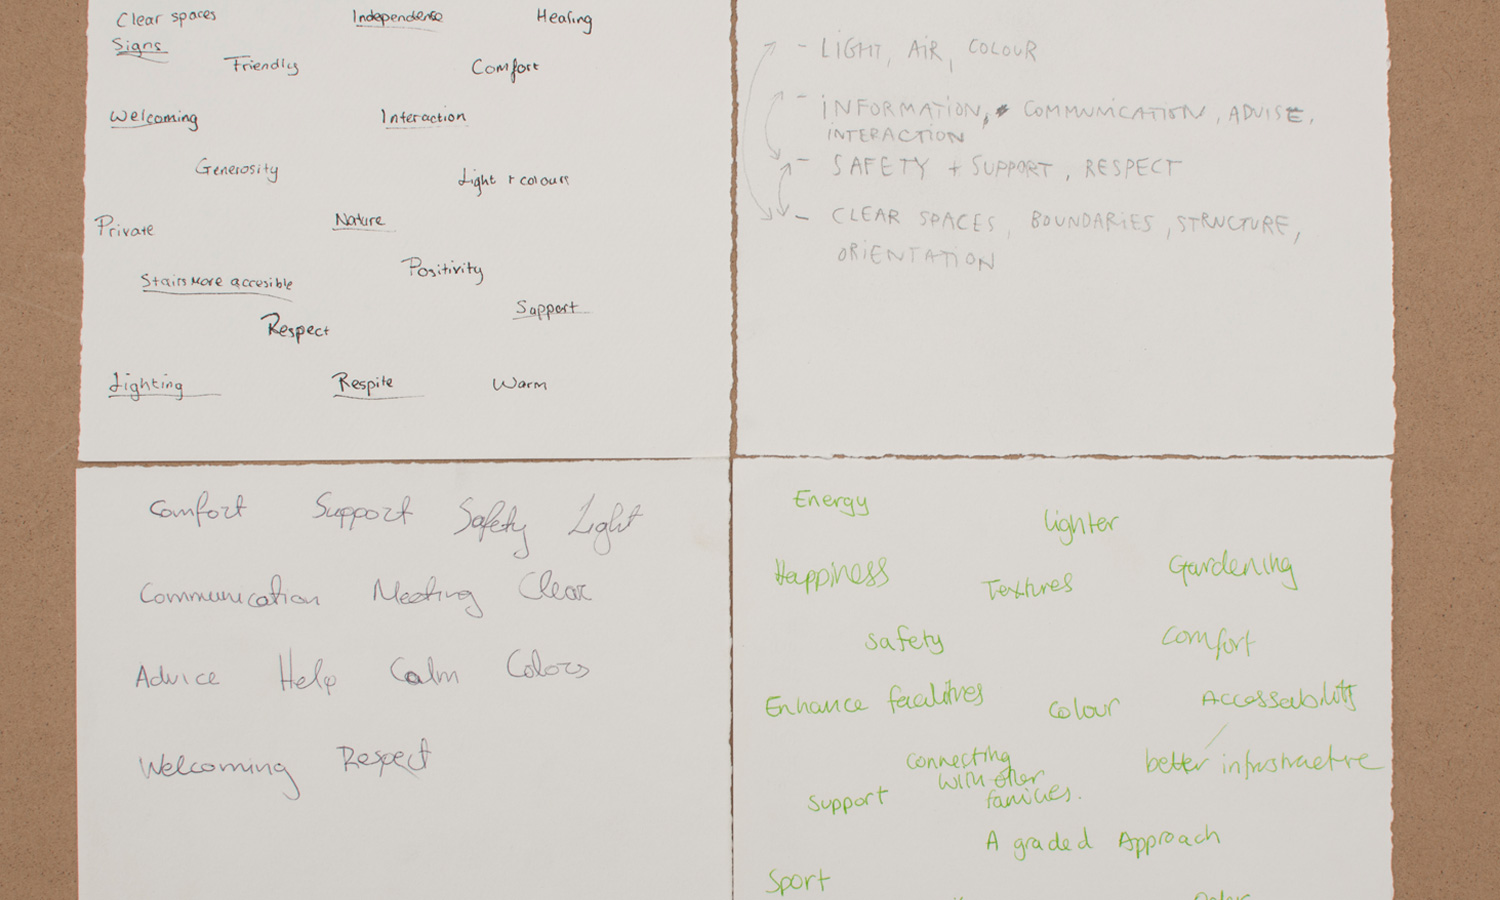 Clear spaces Independence Healing
Signs
Friendly Comfort
Welcoming Interaction
Generosity Light + colours
Private Nature
Positivity
Stairs More accesible
Support
Respect
Lighting Respite Warm
- LIGHT, AIR, COLOUR
- INFORMATION, COMMUNICATION, ADVISE,
INTERACTION
- SAFETY + SUPPORT, RESPECT
- CLEAR SPACES, BOUNDARIES, STRUCTURE,
ORIENTATION
Comfort Support Safety Light
Communication Meeting Clear
Advice Help Calm Colors
Welcoming Respect
Energy
lighter
Happiness Textures Gardening
Safety Comfort
Enhance facilities Colour Accessability
connecting
with other
families.
better infrastructure
Support
A graded Approach
Sport